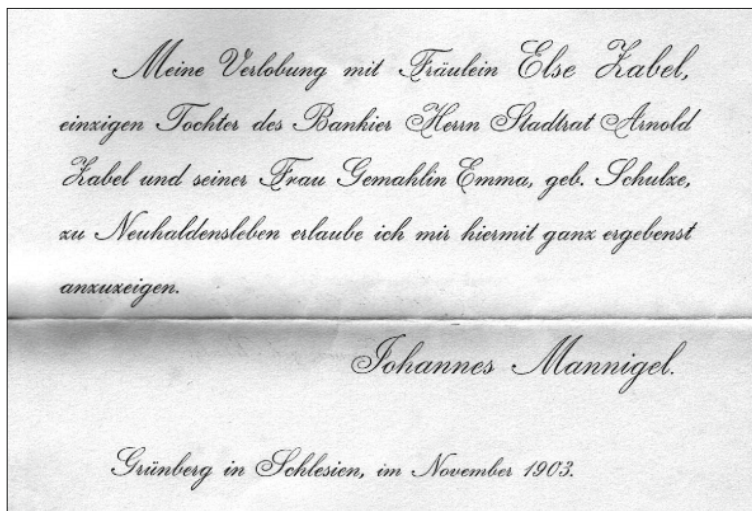 Meine Verlobung mit Fräulein Else Zabel,
einzigen Tochter des Bankier Herrn Stadtrat Arnold
Zabel und seiner Frau Gemahlin Emma, geb. Schulze,
zu Neuhaldensleben erlaube ich mir hiermit ganz ergebenst
anzuzeigen.
Johannes Mannigel.
Grünberg in Schlesien, im November 1903.